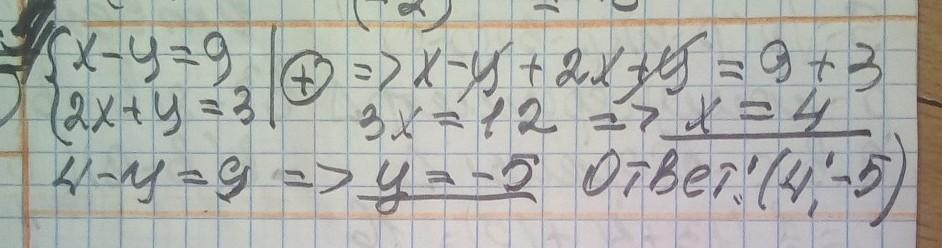 {x-y=9 | ⊕ => x-y+2x+y=9+3
{2x+y=3 | 3x=12 => x=4
4-y=9 => y=-5 Ответ: (4;-5)